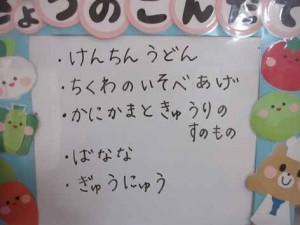 きょうのこんだて
・けんちんうどん
・ちくわのいそべあげ
・かにかまときゅうりの
すのもの
・ばなな
・ぎゅうにゅう